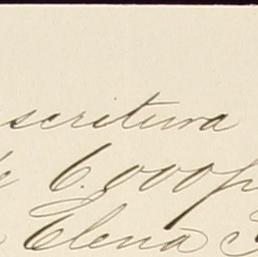 scritura
6.000 p
Elena